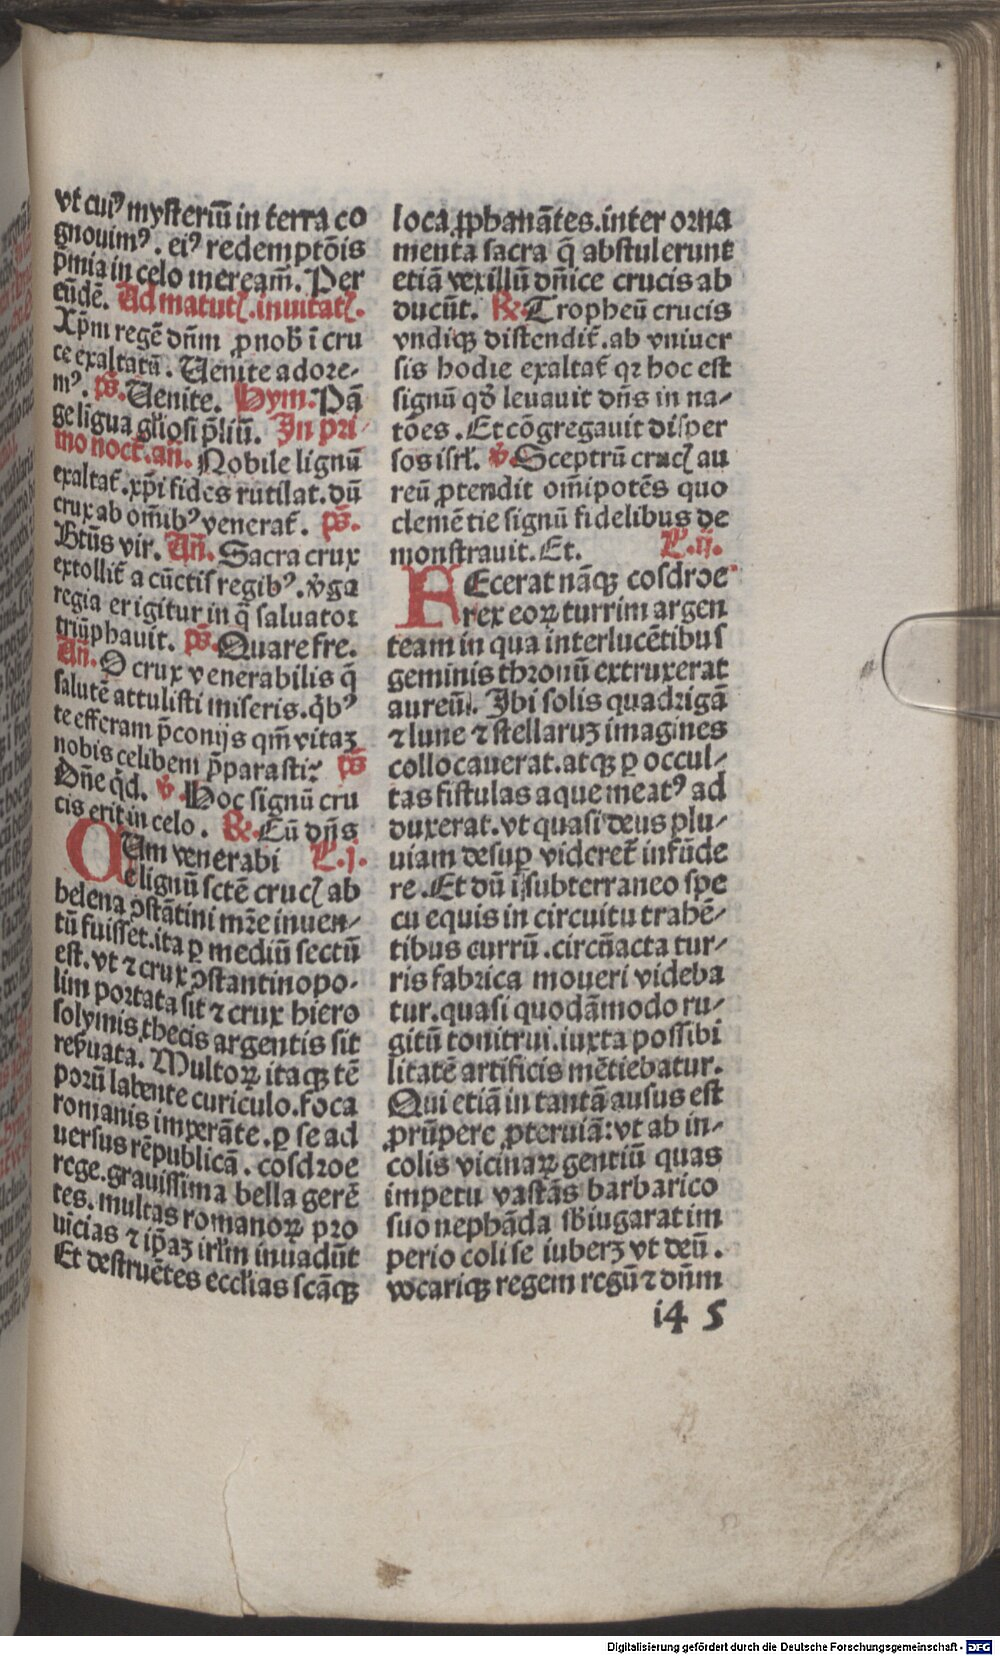 vt cuiꝰ mysteriū in terra co
gnouimꝰ. eiꝰ redemptōis
p̄mia in celo meream̄. Per
eūdē. Ad matutꝭ. inuitatꝭ.
Xp̄m regē dn̄m ꝓ nob̄ ī cru
ce exaltatū. Uenite adore-
mꝰ. ps̄. Uenite. Hym. Pā
ge ligua gl̄iosi p̄liū. In pri
mo noct̄. an̄. Nobile lignū
exaltat̄. xp̄i fides rutilat. dū
crux ab om̄ibꝰ venerat̄. ps̄.
Btūs vir. An̄. Sacra crux
extollit̄ a cūctis regibꝰ. v̄ga
regia erigitur in q̄ saluator
triūphauit. ps̄. Quare fre.
An̄. O crux venerabilis q̄
salutē attulisti miseris. qb̄ꝰ
te efferam p̄conijs qm̄ vitaꝫ
nobis celibem p̄parasti: ps̄
Dn̄e qd̄. v̄. Hoc signū cru
cis erit in celo. ꝶ. Cū dn̄s
Cum venerabi L. j.
le lignū sctē crucꝭ ab
helena ꝯstātini mr̄e inuen-
tū fuisset. ita ꝑ mediū sectū
est. vt ⁊ crux ꝯstantinopo-
lim portata sit ⁊ crux hiero
solymis thecis argentis sit
rep̄uata. Multoꝝ itaqꝫ tē
porū labente curiculo. foca
romanis imperāte. ꝑ se ad
uersus rēpublicā. cosdroe
rege. grauissima bella gerē
tes. multas romanoꝝ pro
uīcias ⁊ ip̄aꝫ irl̄m inuadūt
Et destruētes eccl̄ias scāqꝫ
loca ꝓphanātes. inter orna
menta sacra q̄ abstulerunt
etiā vexillū dn̄ice crucis ab
ducūt. ꝶ. Tropheū crucis
vndiqꝫ distendit̄. ab vniuer
sis hodie exaltat̄ qꝛ hoc est
signū qd̓ leuauit dn̄s in na-
tōes. Et cōgregauit disper
sos isrl̄. v̄. Sceptrū crucꝭ au
reū ꝓtendit om̄ipotēs quo
clemētie signū fidelibus de
monstrauit. Et. L. ij.
FEcerat nāqꝫ cosdroe
rex eoꝝ turrim argen
team in qua interlucētibus
geminis thronū extruxerat
aureū. Ibi solis quadrigā
⁊ lune ⁊ stellaruꝫ imagines
collocauerat. atqꝫ ꝑ occul-
tas fistulas aque meatꝰ ad
duxerat. vt quasi deus plu-
uiam desuꝑ videret̄ infūde
re. Et dū ī subterraneo spe
cu equis in circuitu trahē-
tibus currū. circūacta tur-
ris fabrica moueri videba
tur. quasi quodāmodo ru-
gitū tonitrui. iuxta possibi
litatē artificis mētiebatur.
Qui etiā in tantā ausus est
prūpere ꝓteruiā: vt ab in-
colis vicinaꝝ gentiū quas
impetu vastās barbarico
suo nephāda sb̄iugarat im
perio coli se iuberꝫ vt deū.
vocariqꝫ regem regū ⁊ dn̄m
i4 5
Digitalisierung gefördert durch die Deutsche Forschungsgemeinschaft - DFG